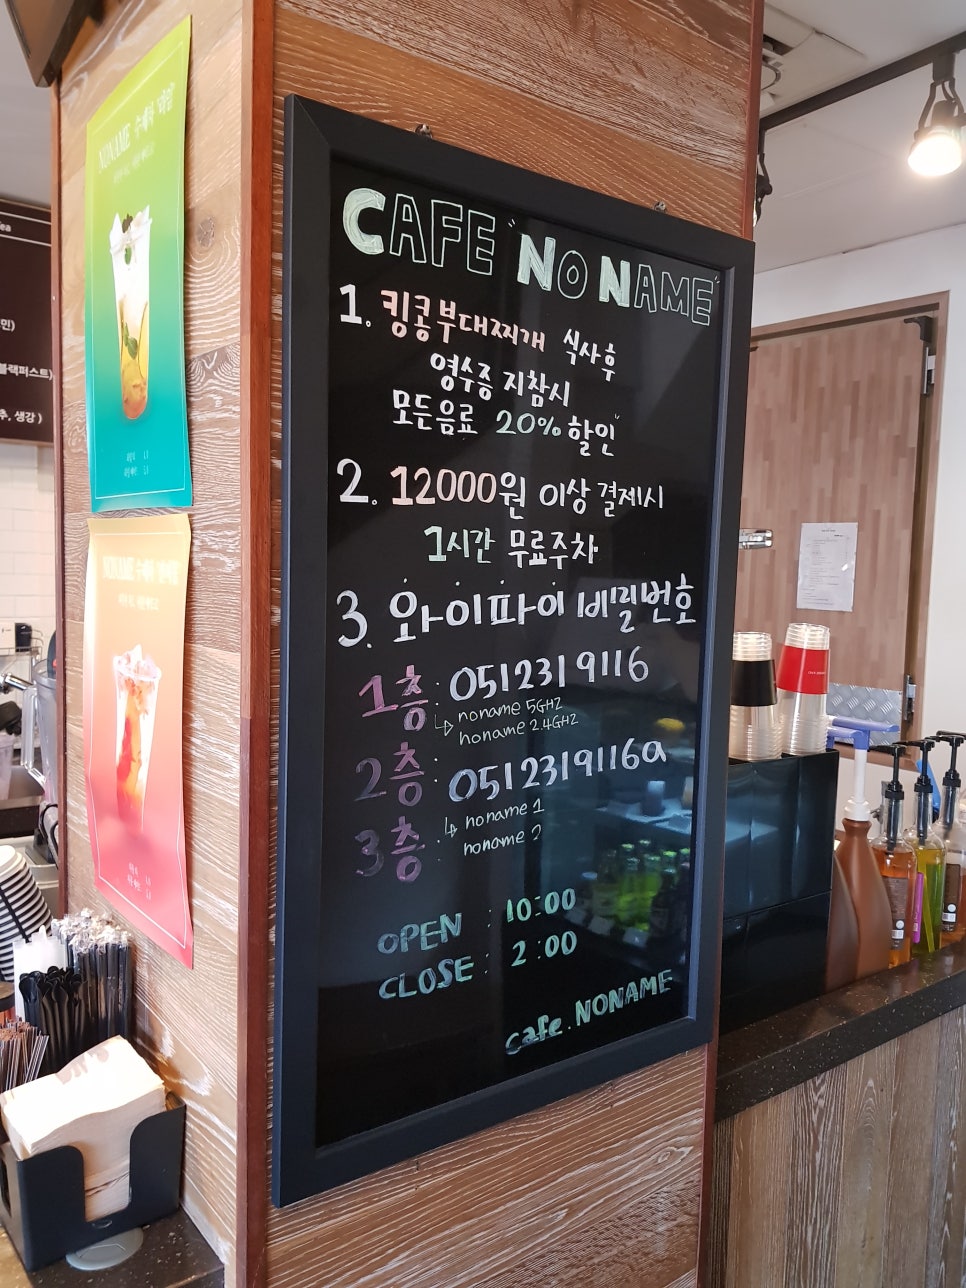 CAFE "NO NAME"
1. 킹콩부대찌개 식사후
영수증 지참시
모든음료 20% 할인"
2. 12000원 이상 결제시
1시간 무료주차
3. 와이파이 비밀번호
1층 : 0512319116
↳ noname 5GHZ
noname 2.4GHZ
2층 : 0512319116a
3층 : ↳ noname 1
noname 2
OPEN : 10:00
CLOSE : 2:00
cafe. NONAME
NONAME 수제차
NONAME 수제차
블랙퍼스트)
추, 생강)